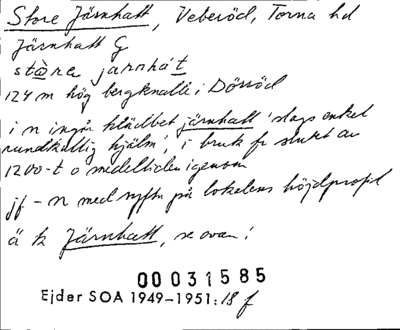 Store Järnhatt, Veberöd, Torna hd
Järnhatt G
stòra jarnhát
124 m hög bergknalle i Dörröd
i n ingår klädbet järnhatt 'slags enkel
rundkullig hjälm', i bruk fr slutet av
1200-t o medeltiden igenom
jf - n med syftn på lokalens höjdprofil
ä tz Järnhatt, se ovan!
00031585
Ejder SOA 1949-1951: 18 f